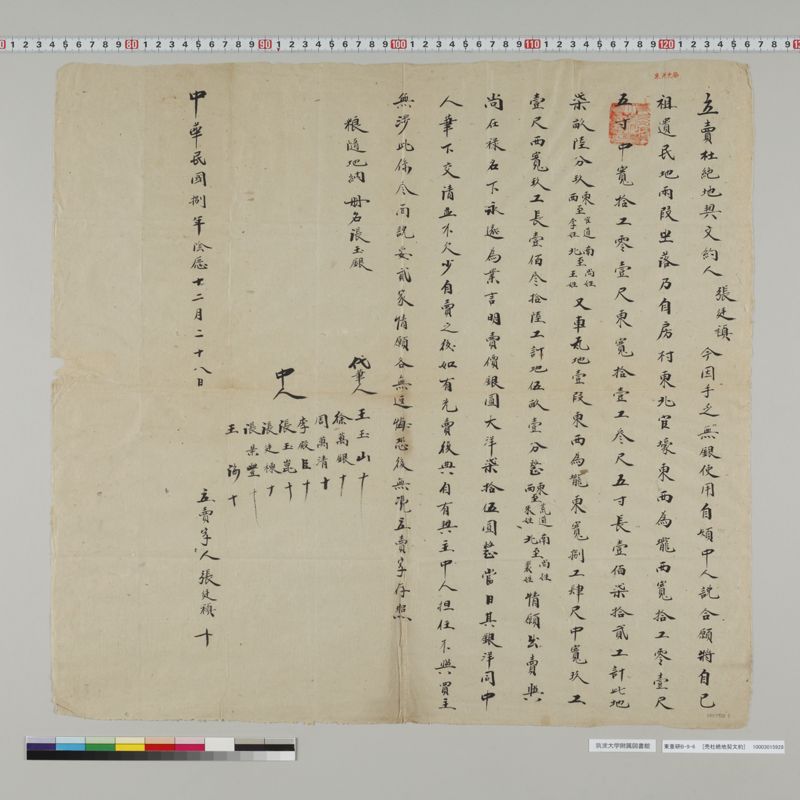 立賣杜絕地契文約人 張廷禎 今因手乏無銀使用自煩中人說合願將自己
祖遺民地兩段坐落乃自房村東北官壕東西為壠西寬拾工零壹尺
五寸中寬拾工零壹尺東寬拾壹工叁尺五寸長壹佰柒拾貳工計此地
柒畝陸分玖 東至官道 南至尚姓 西至李姓 北至王姓 又車瓦地壹段東西為壠東寬捌工肆尺中寬玖工
壹尺西寬玖工長壹佰叁拾陸工計地伍畝壹分整 東至荒道 南至尚姓 西至朱姓 北至裴姓 情願出賣與
尚在祿名下永遠為業言明賣價銀圓大洋柒拾伍圓整當日其銀洋同中
人筆下交清並不欠少自賣之後如有先賣後典自有與主中人担任不與買主
無涉此係合同說妥貳家情願各無返悔恐後無凭立賣字存照
粮隨地納 冊名張玉銀
代筆人 王玉山 十
徐萬銀 十
周萬清 十
中人 李殿臣 十
張玉崑 十
張廷棟 十
張景豐 十
王 十
立賣字人 張廷禎 十
中華民國捌年陰歷十二月二十八日
筑波大学附属図書館
東亜研6-9-6 [売杜絶地契文約] 10003015928